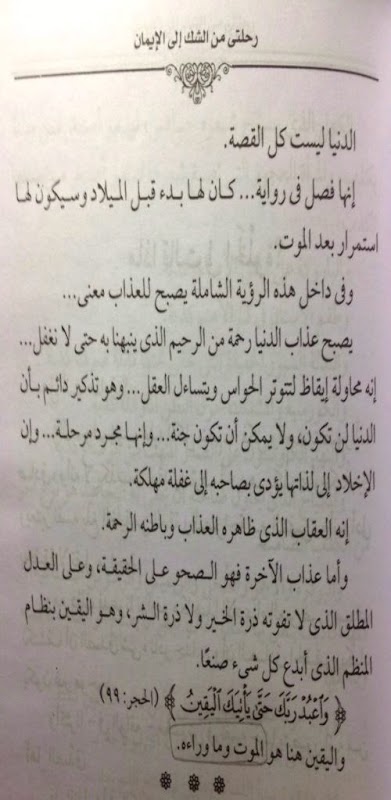 رحلتى من الشك إلى الإيمان
الدنيا ليست كل القصة.
إنها فصل فى رواية... كان لها بدء قبل الميلاد وسيكون لها
استمرار بعد الموت.
وفى داخل هذه الرؤية الشاملة يصبح للعذاب معنى...
يصبح عذاب الدنيا رحمة من الرحيم الذى ينبهنا به حتى لا نغفل...
إنه محاولة إيقاظ لتتوتر الحواس ويتساءل العقل... وهو تذكير دائم بأن
الدنيا لن تكون، ولا يمكن أن تكون جنة... وإنها مجرد مرحلة... وإن
الإخلاد إلى لذاتها يؤدى بصاحبه إلى غفلة مهلكة.
إنه العقاب الذى ظاهره العذاب وباطنه الرحمة.
وأما عذاب الآخرة فهو الصحو على الحقيقة، وعلى العدل
المطلق الذى لا تفوته ذرة الخير ولا ذرة الشر، وهو اليقين بنظام
المنظم الذى أبدع كل شىء صنعًا.
﴿ وَاعْبُدْ رَبَّكَ حَتَّى يَأْتِيَكَ الْيَقِينُ ﴾ (الحجر: ٩٩)
واليقين هنا هو الموت وما وراءه.
* * *